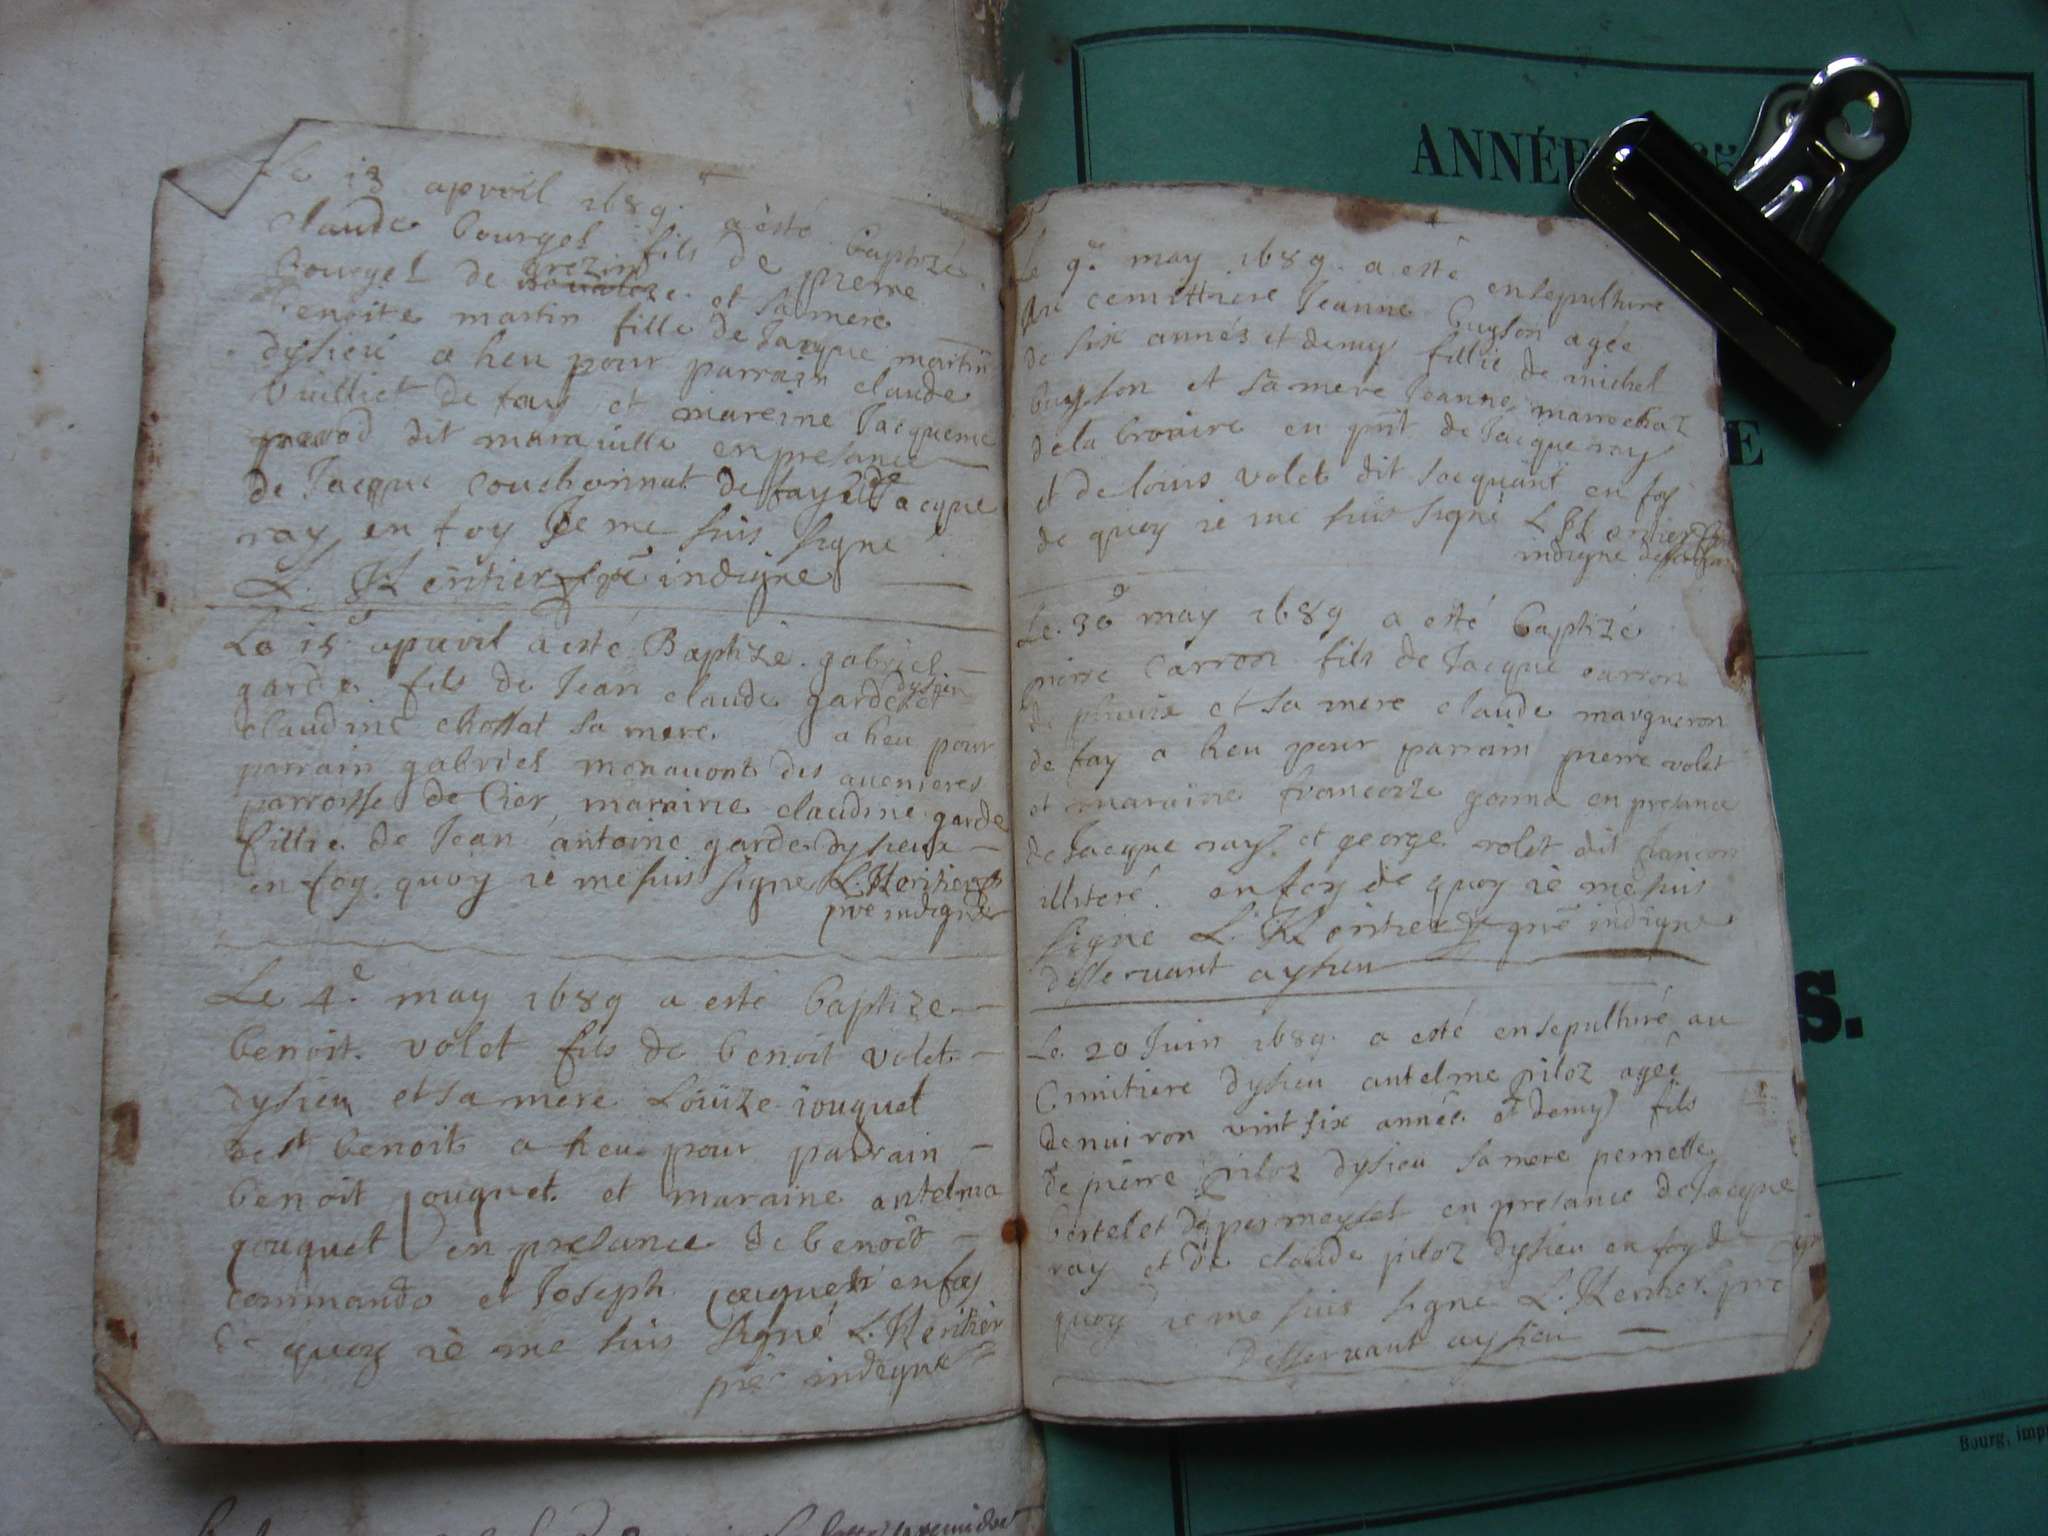 Le 13 apvril 1689. a esté baptizé
claude bourget fils de pierre
bourget de grezin et sa mere
benoite martin fille de Jacque martin
dysieu a heu pour parrain claude
vuilliet de fay et mareine Jacqueme
dit en presance
de Jacque couchonnat de fay et de Jacque
ray en foy Je me suis signe
L. Heritier indigne
Le 15e apuvril a esté Baptizé gabriel
garde fils de Jean claude garde dysieu et
claudine chossat sa mere. a heu pour
parrain gabriel monavont des auenieres
parroisse de Cier, maraine claudine garde
fillie de Jean antoine garde dysieux
en foy quoy ie me suis signe L. Heritier
pre indigne
Le 4e may 1689 a esté baptize
benoit volet fils de benoit volet
dysieu et sa mere Loüize iouguet
de st benoit a heu pour parrain
benoit jouguet et maraine antelma
jouguet en presance de benoit
commando et Joseph jouguet en foy
de quoy ie me suis signé L. Heritier
pre indigne
Le 9e may 1689. a esté ensepulture
au cemittiere Jeanne buyson agée
de six annés et demy fillie de michel
buyson et sa mere Jeanne marrochaz
de la broaire en pnt de Jacque ray
et de louis volet dit Jacquant en foy
de quoy ie me suis signé L. Heritier
indigne
Le 30e may 1689 a esté baptizé
pierre carron fils de Jacque carron
de et sa mere claude margueron
de fay a heu pour parrain pierre volet
et maraine francoize gonna en presance
de Jacque ray et george volet dit francon
illiteré. en foy de quoy ie me suis
signe L. Heritier pre indigne
desservant aysieu
Le 20 Juin 1689. a esté ensepulturé au
Cimitiere dysieu antelme piloz agée
denuiron vint six année et demy fils
de pierre piloz dysieu sa mere pernette
bertelet de en presance de Jacque
ray et de claude piloz dysieu en foy de
quoy ie me suis signe L. Heritier pre
desservant aysieu
ANNÉE
E
S.
Bourg, imp